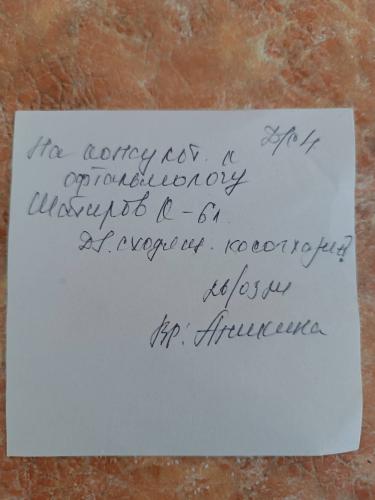 На консульт. к Д/с 4
офтальмологу
Шакиров 6л.
DS. сходящ. косоглазие?
26/03
Вр: Аникина